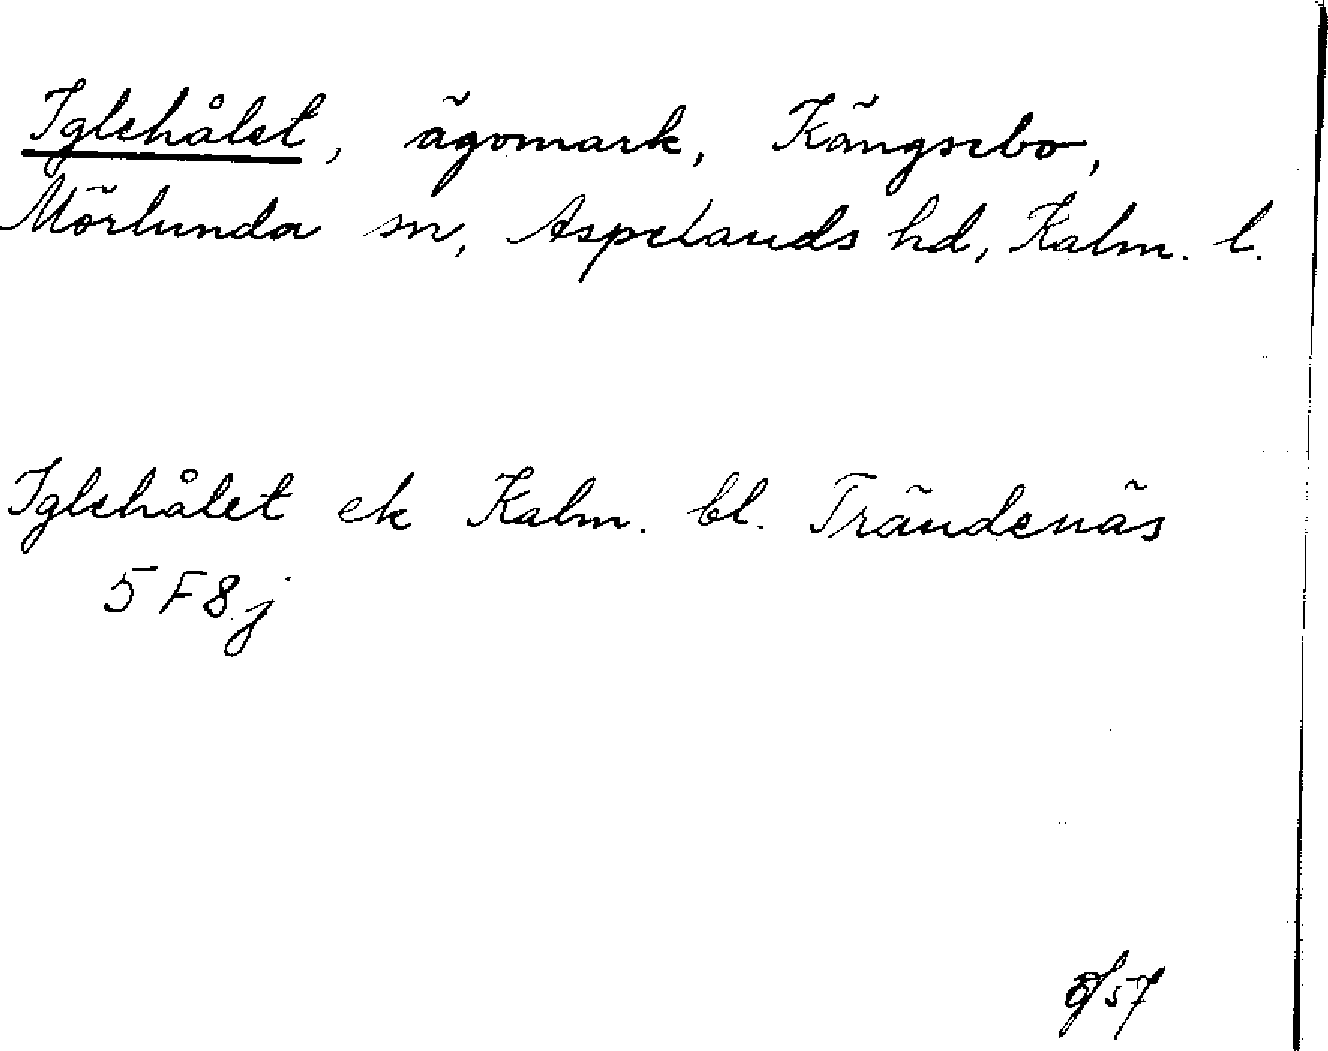 Iglehålet, ägomark, Kängsebo,
Mörlunda sn, Aspelands hd, Kalm. l.
Iglehålet ek Kalm. bl. Trändenäs
5 F 8 j